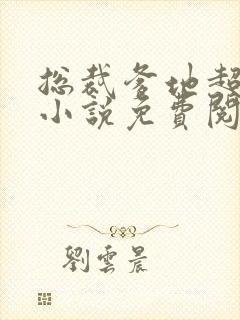 総裁爹地超
小說免費閱
劉雲晨